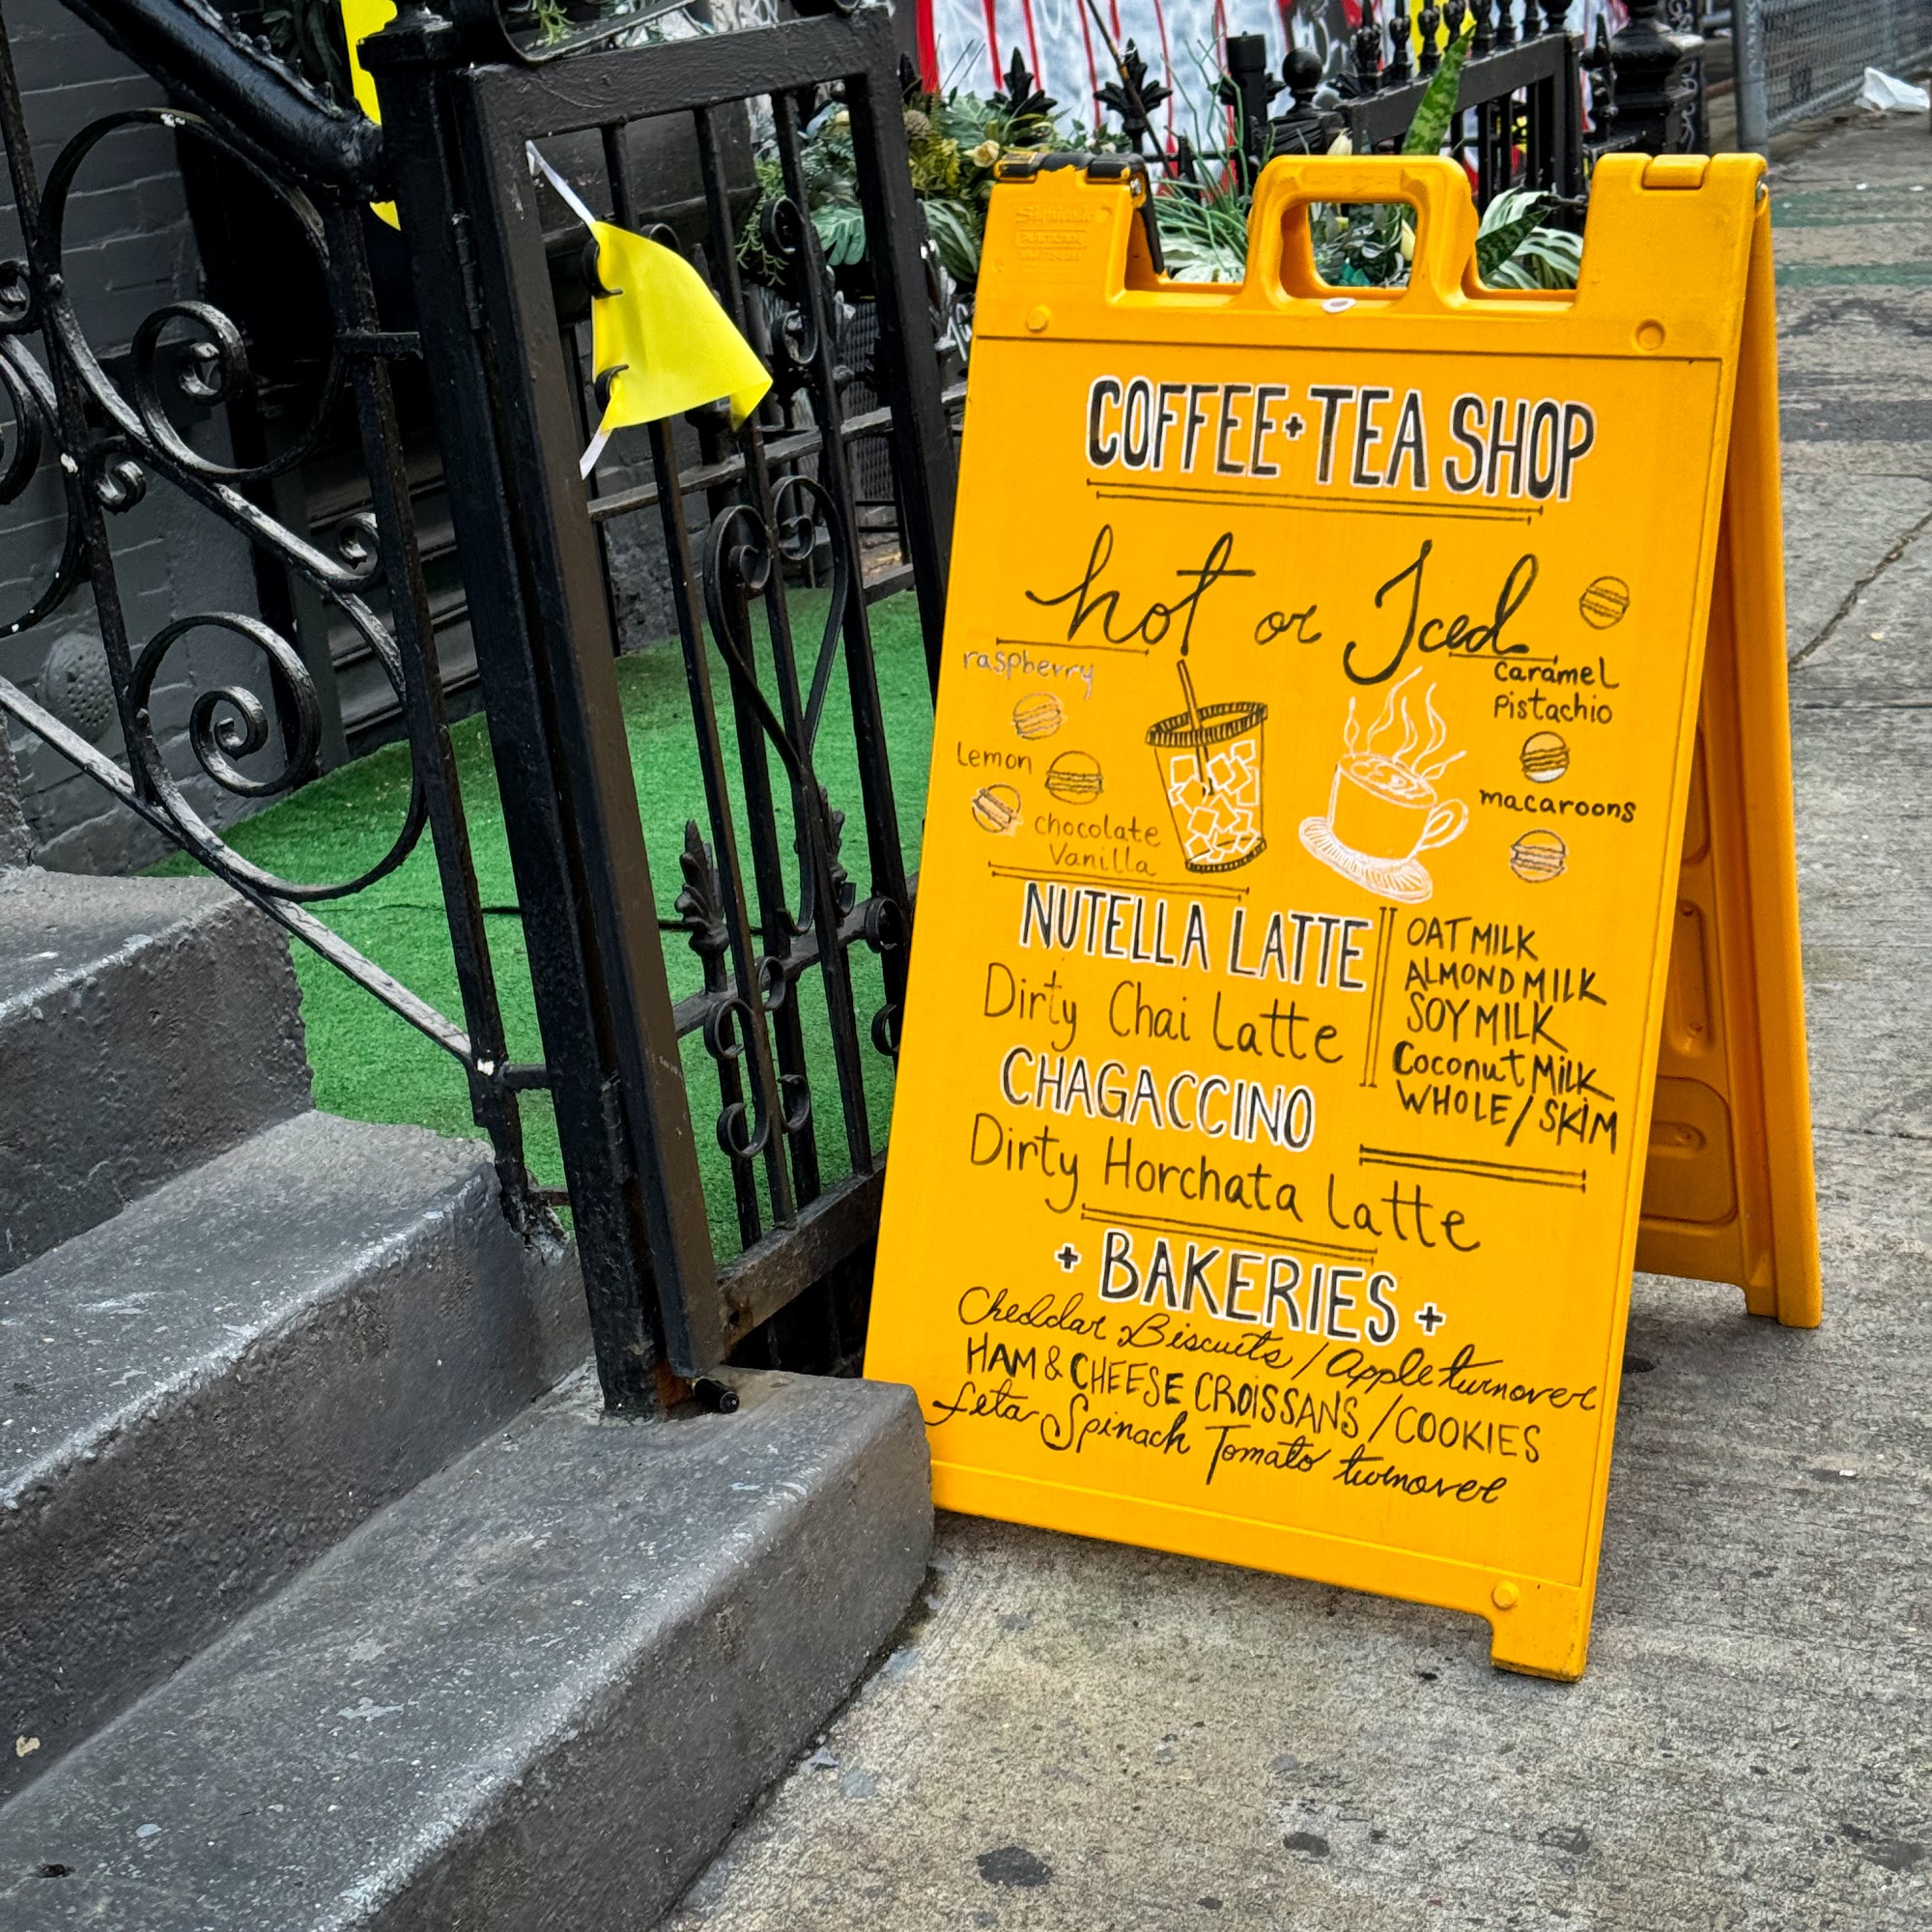 COFFEE + TEA SHOP
hot or Iced
raspberry
Lemon
chocolate
Vanilla
caramel
Pistachio
macaroons
NUTELLA LATTE
Dirty Chai Latte
CHAGACCINO
Dirty Horchata Latte
OAT MILK
ALMOND MILK
SOY MILK
Coconut MiLK
WHOLE / SKiM
+ BAKERIES +
Cheddar Biscuits / Apple turnover
HAM & CHEESE CROiSSANS / COOKIES
feta Spinach Tomato turnover